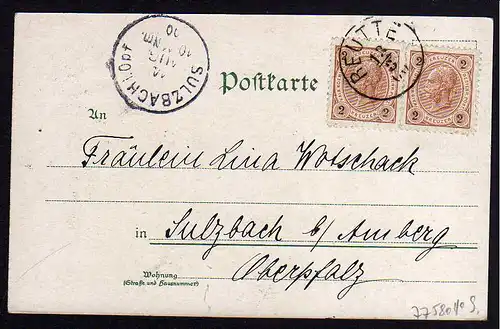 SULZBACH I. OPf.
11
AUG
10
00
REUTTE
Postkarte
2 2
2 2
KREUZER
KREUZER
An
Fräulein Lina Wotschack
in Sulzbach b/ Amberg
Oberpfalz
Wohnung
(Straße und Hausnummer)